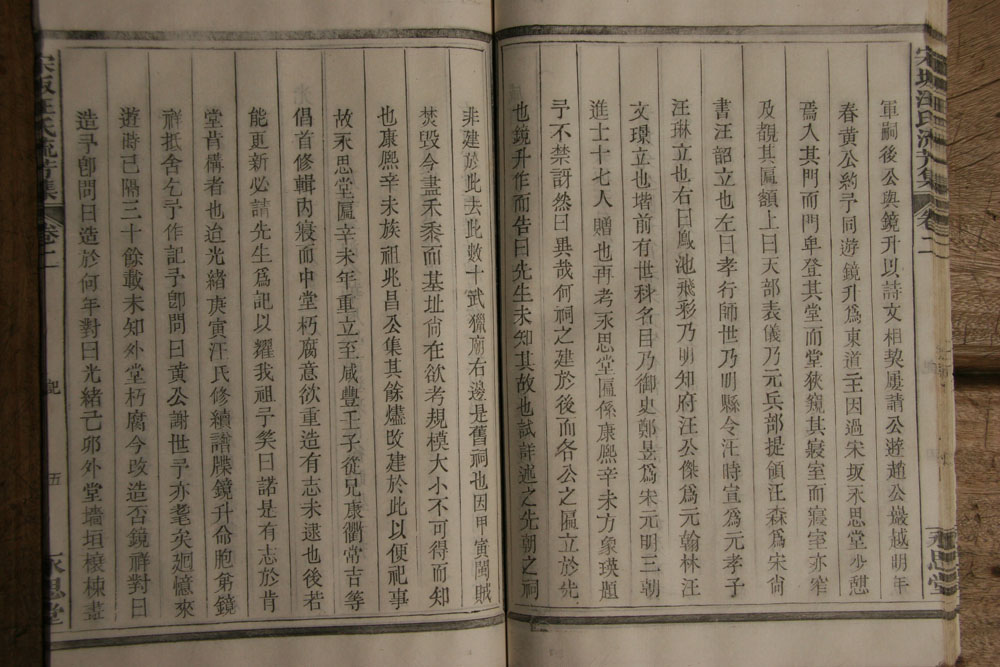 軍嗣後公與鏡升以詩文相契屢請公遊趙公巖越明年
春黃公約予同遊鏡升爲東道主因過宋坂永思堂少憇
焉入其門而門卑登其堂而堂狹窺其寢室而寢室亦窄
及觀其匾額上曰天部表儀乃元兵部提領汪森爲宋尙
書汪韶立也左曰孝行師世乃明縣令汪時宣爲元孝子
汪琳立也右曰鳳池飛彩乃明知府汪公傑爲元翰林汪
文璟立也堦前有世科名目乃御史鄭昱爲宋元明三朝
進士十七人贈也再考永思堂匾係康熙辛未方象瑛題
予不禁訝然曰異哉何祠之建於後而各公之匾立於先
也鏡升作而告曰先生未知其故也試詳述之先朝之祠
非建於此去此數十武獵廟右邊是舊祠也因甲寅閩賊
焚毀今盡禾黍而基址尙在欲考規模大小不可得而知
也康熙辛未族祖兆昌公集其餘燼改建於此以便祀事
故永思堂匾辛未年重立至咸豐壬子從兄康衢常吉等
倡首修輯內寢而中堂朽腐意欲重造有志未逮也後若
能更新必請先生爲記以耀我祖予笑曰諾是有志於肯
堂肯構者也迨光緖庚寅汪氏修續譜牒鏡升命胞弟鏡
祥抵舍乞予作記予卽問曰黃公謝世予亦耄矣廻憶來
遊時已隔三十餘載未知外堂朽腐今改造否鏡祥對曰
造予卽問曰造於何年對曰光緖己卯外堂墻垣榱棟盡
宋坂汪氏流芳集
卷二
記
五
永思堂
宋坂汪氏流芳集
卷二
永思堂